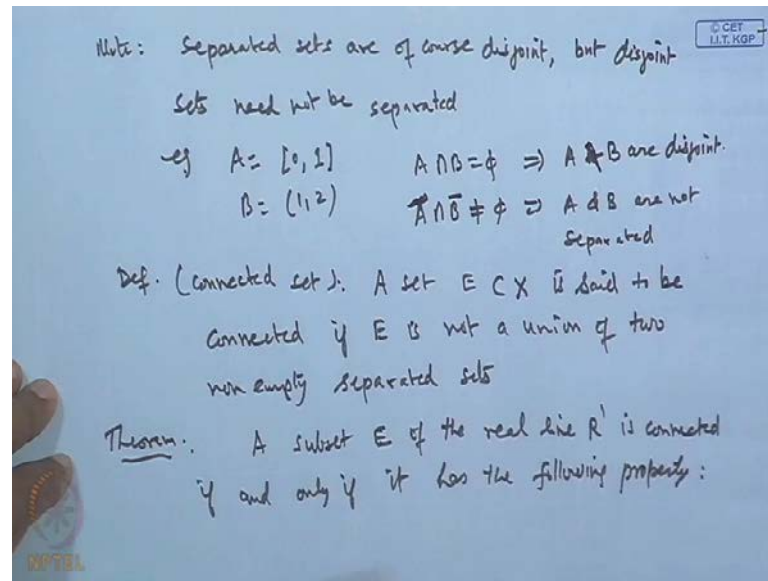 © CET
I.I.T. KGP
Note: Separated sets are of course disjoint, but disjoint
sets need not be separated
eg A = [0, 1] A ∩ B = φ ⇒ A & B are disjoint.
B = (1, 2) A ∩ B̄ ≠ φ ⇒ A & B are not
separated
Def. (Connected set): A set E ⊂ X is said to be
connected if E is not a union of two
non empty separated sets
Theorem. A subset E of the real line R' is connected
if and only if it has the following property:
NPTEL